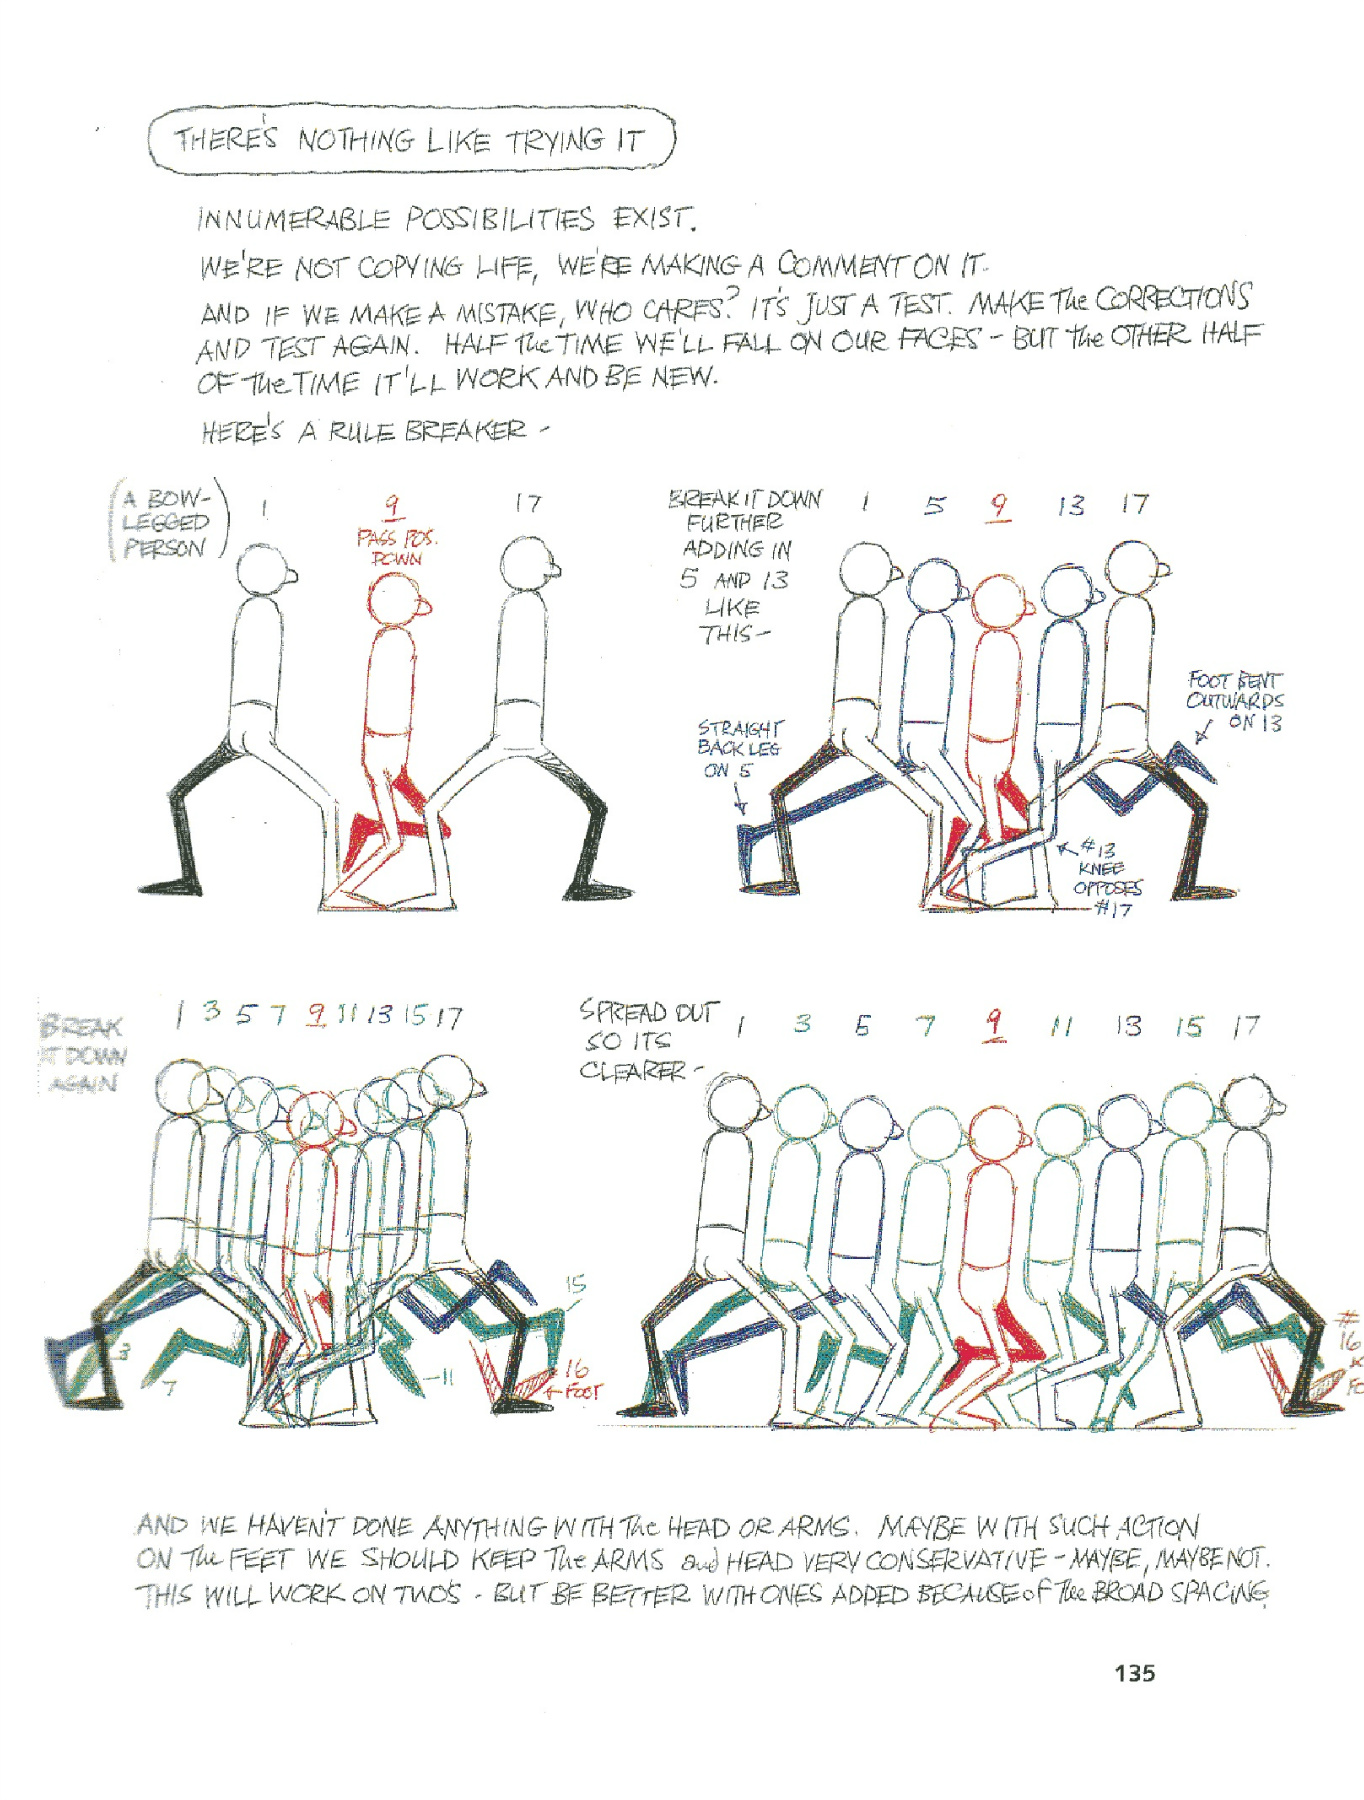 THERE'S NOTHING LIKE TRYING IT
INNUMERABLE POSSIBILITIES EXIST.
WE'RE NOT COPYING LIFE, WE'RE MAKING A COMMENT ON IT.
AND IF WE MAKE A MISTAKE, WHO CARES? IT'S JUST A TEST. MAKE The CORRECTIONS
AND TEST AGAIN. HALF The TIME WE'LL FALL ON OUR FACES - BUT The OTHER HALF
OF The TIME IT'LL WORK AND BE NEW.
HERE'S A RULE BREAKER -
(A BOW-
LEGGED
PERSON)
1 9 17
PASS POS.
DOWN
BREAK IT DOWN
FURTHER
ADDING IN
5 AND 13
LIKE
THIS -
1 5 9 13 17
STRAIGHT
BACK LEG
ON 5
FOOT BENT
OUTWARDS
ON 13
#13
KNEE
OPPOSES
#17
BREAK
IT DOWN
AGAIN
1 3 5 7 9 11 13 15 17
3
7
11
15
16
FOOT
SPREAD OUT
SO ITS
CLEARER -
1 3 5 7 9 11 13 15 17
#
16
AND WE HAVEN'T DONE ANYTHING WITH The HEAD OR ARMS. MAYBE WITH SUCH ACTION
ON The FEET WE SHOULD KEEP The ARMS and HEAD VERY CONSERVATIVE - MAYBE, MAYBE NOT.
THIS WILL WORK ON TWO'S - BUT BE BETTER WITH ONES ADDED BECAUSE of The BROAD SPACING.
135